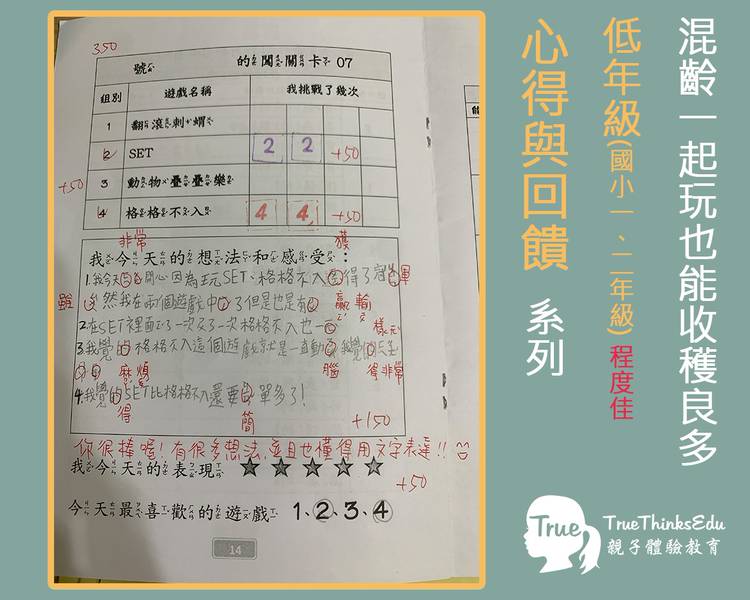 混齡一起玩也能收穫良多
低年級(國小一、二年級)程度佳
心得與回饋 系列
350
號 的闖關卡 07
組別 遊戲名稱 我挑戰了幾次
1 翻滾刺蝟
2 SET 2 2 +50
+50 3 動物疊疊樂
4 格格不入 4 4 +50
非常 獲
我今天的想法和感受:
1.我今天 開心因為玩SET、格格不入 得了 軍
雖 然我在兩個遊戲中 了但是也是有 贏 輸
2.在SET裡面 了一次又了一次格格不入也一 樣
3.我覺 格格不入這個遊戲就是一直動 我覺
麻煩 腦 得非常
4.我覺 SET比格格不入還要 單多了!
得 簡 +150
你很棒喔!有很多想法,並且也懂得用文字表達!!
我今天的表現:☆☆☆☆☆
+50
今天最喜歡的遊戲:1、2、3、4
14
True
TrueThinksEdu
親子體驗教育